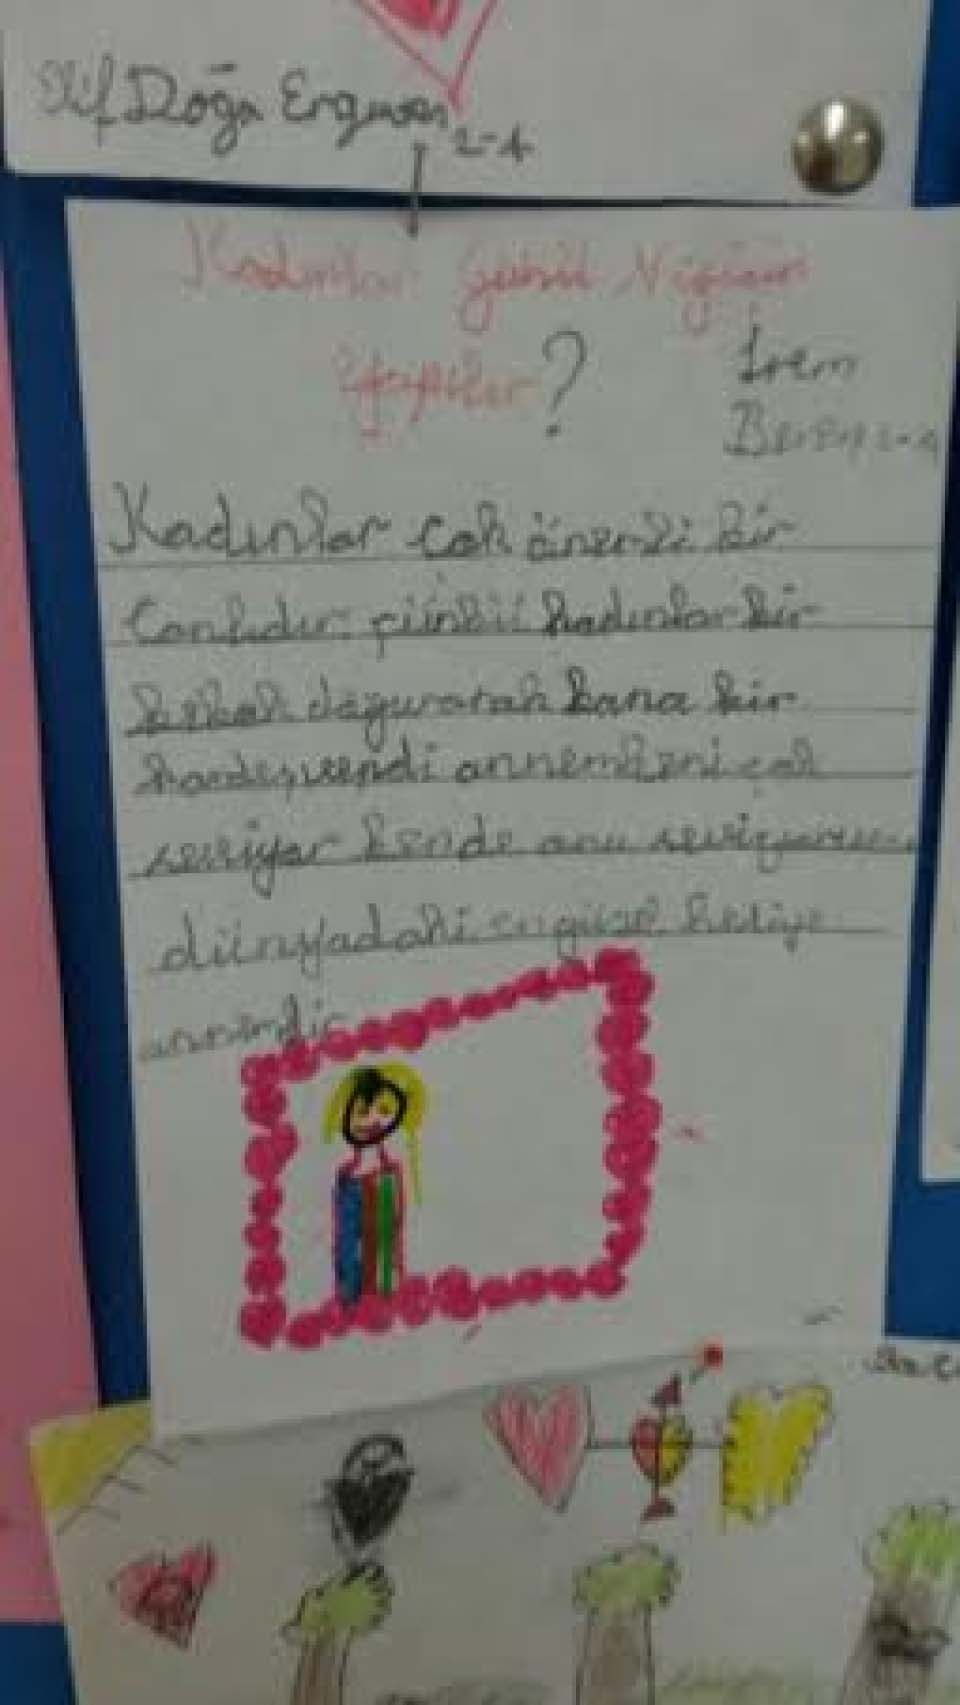 Elif Doğa Erguvan
2-A
Kadınlar Günü Niçin
Yapılır?
İrem
2-A
Kadınlar çok önemli bir
canlıdır. çünkü kadınlar bir
bebek doğurarak bana bir
kardeş verdi annem beni çok
seviyor bende onu seviyorum.
dünyadaki en güzel hediye
annemdir